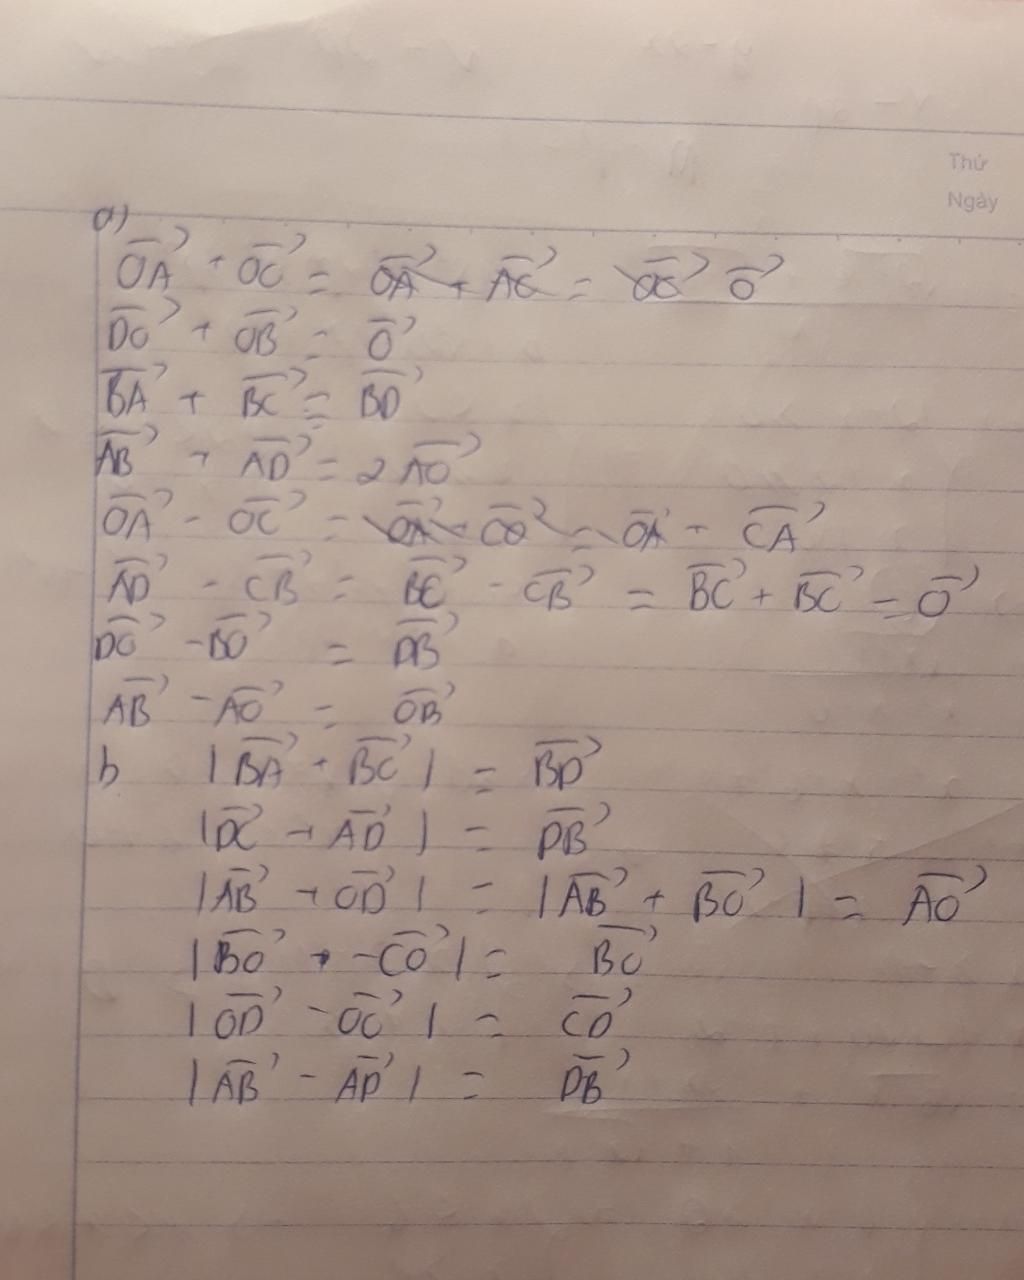 Thứ
Ngày
a)
$\overrightarrow{OA} + \overrightarrow{OC} = \overrightarrow{OA} + \overrightarrow{AC} = \overrightarrow{OC}$ $\overrightarrow{O}$
$\overrightarrow{DO} + \overrightarrow{OB} = \overrightarrow{O}$
$\overrightarrow{BA} + \overrightarrow{BC} = \overrightarrow{BD}$
$\overrightarrow{AB} + \overrightarrow{AD} = 2\overrightarrow{AO}$
$\overrightarrow{OA} - \overrightarrow{OC} = \overrightarrow{OA} - \overrightarrow{CO} = \overrightarrow{OA} - \overrightarrow{CA}$
$\overrightarrow{AD} - \overrightarrow{CB} = \overrightarrow{BC} - \overrightarrow{CB} = \overrightarrow{BC} + \overrightarrow{BC} = \overrightarrow{O}$
$\overrightarrow{DO} - \overrightarrow{BO} = \overrightarrow{DB}$
$\overrightarrow{AB} - \overrightarrow{AO} = \overrightarrow{OB}$
b $|\overrightarrow{BA} + \overrightarrow{BC}| = \overrightarrow{BD}$
$|\overrightarrow{DC} + \overrightarrow{AD}| = \overrightarrow{DB}$
$|\overrightarrow{AB} + \overrightarrow{OD}| = |\overrightarrow{AB} + \overrightarrow{BO}| = \overrightarrow{AO}$
$|\overrightarrow{BO} - \overrightarrow{CO}| = \overrightarrow{BC}$
$|\overrightarrow{OD} - \overrightarrow{OC}| = \overrightarrow{CD}$
$|\overrightarrow{AB} - \overrightarrow{AD}| = \overrightarrow{DB}$